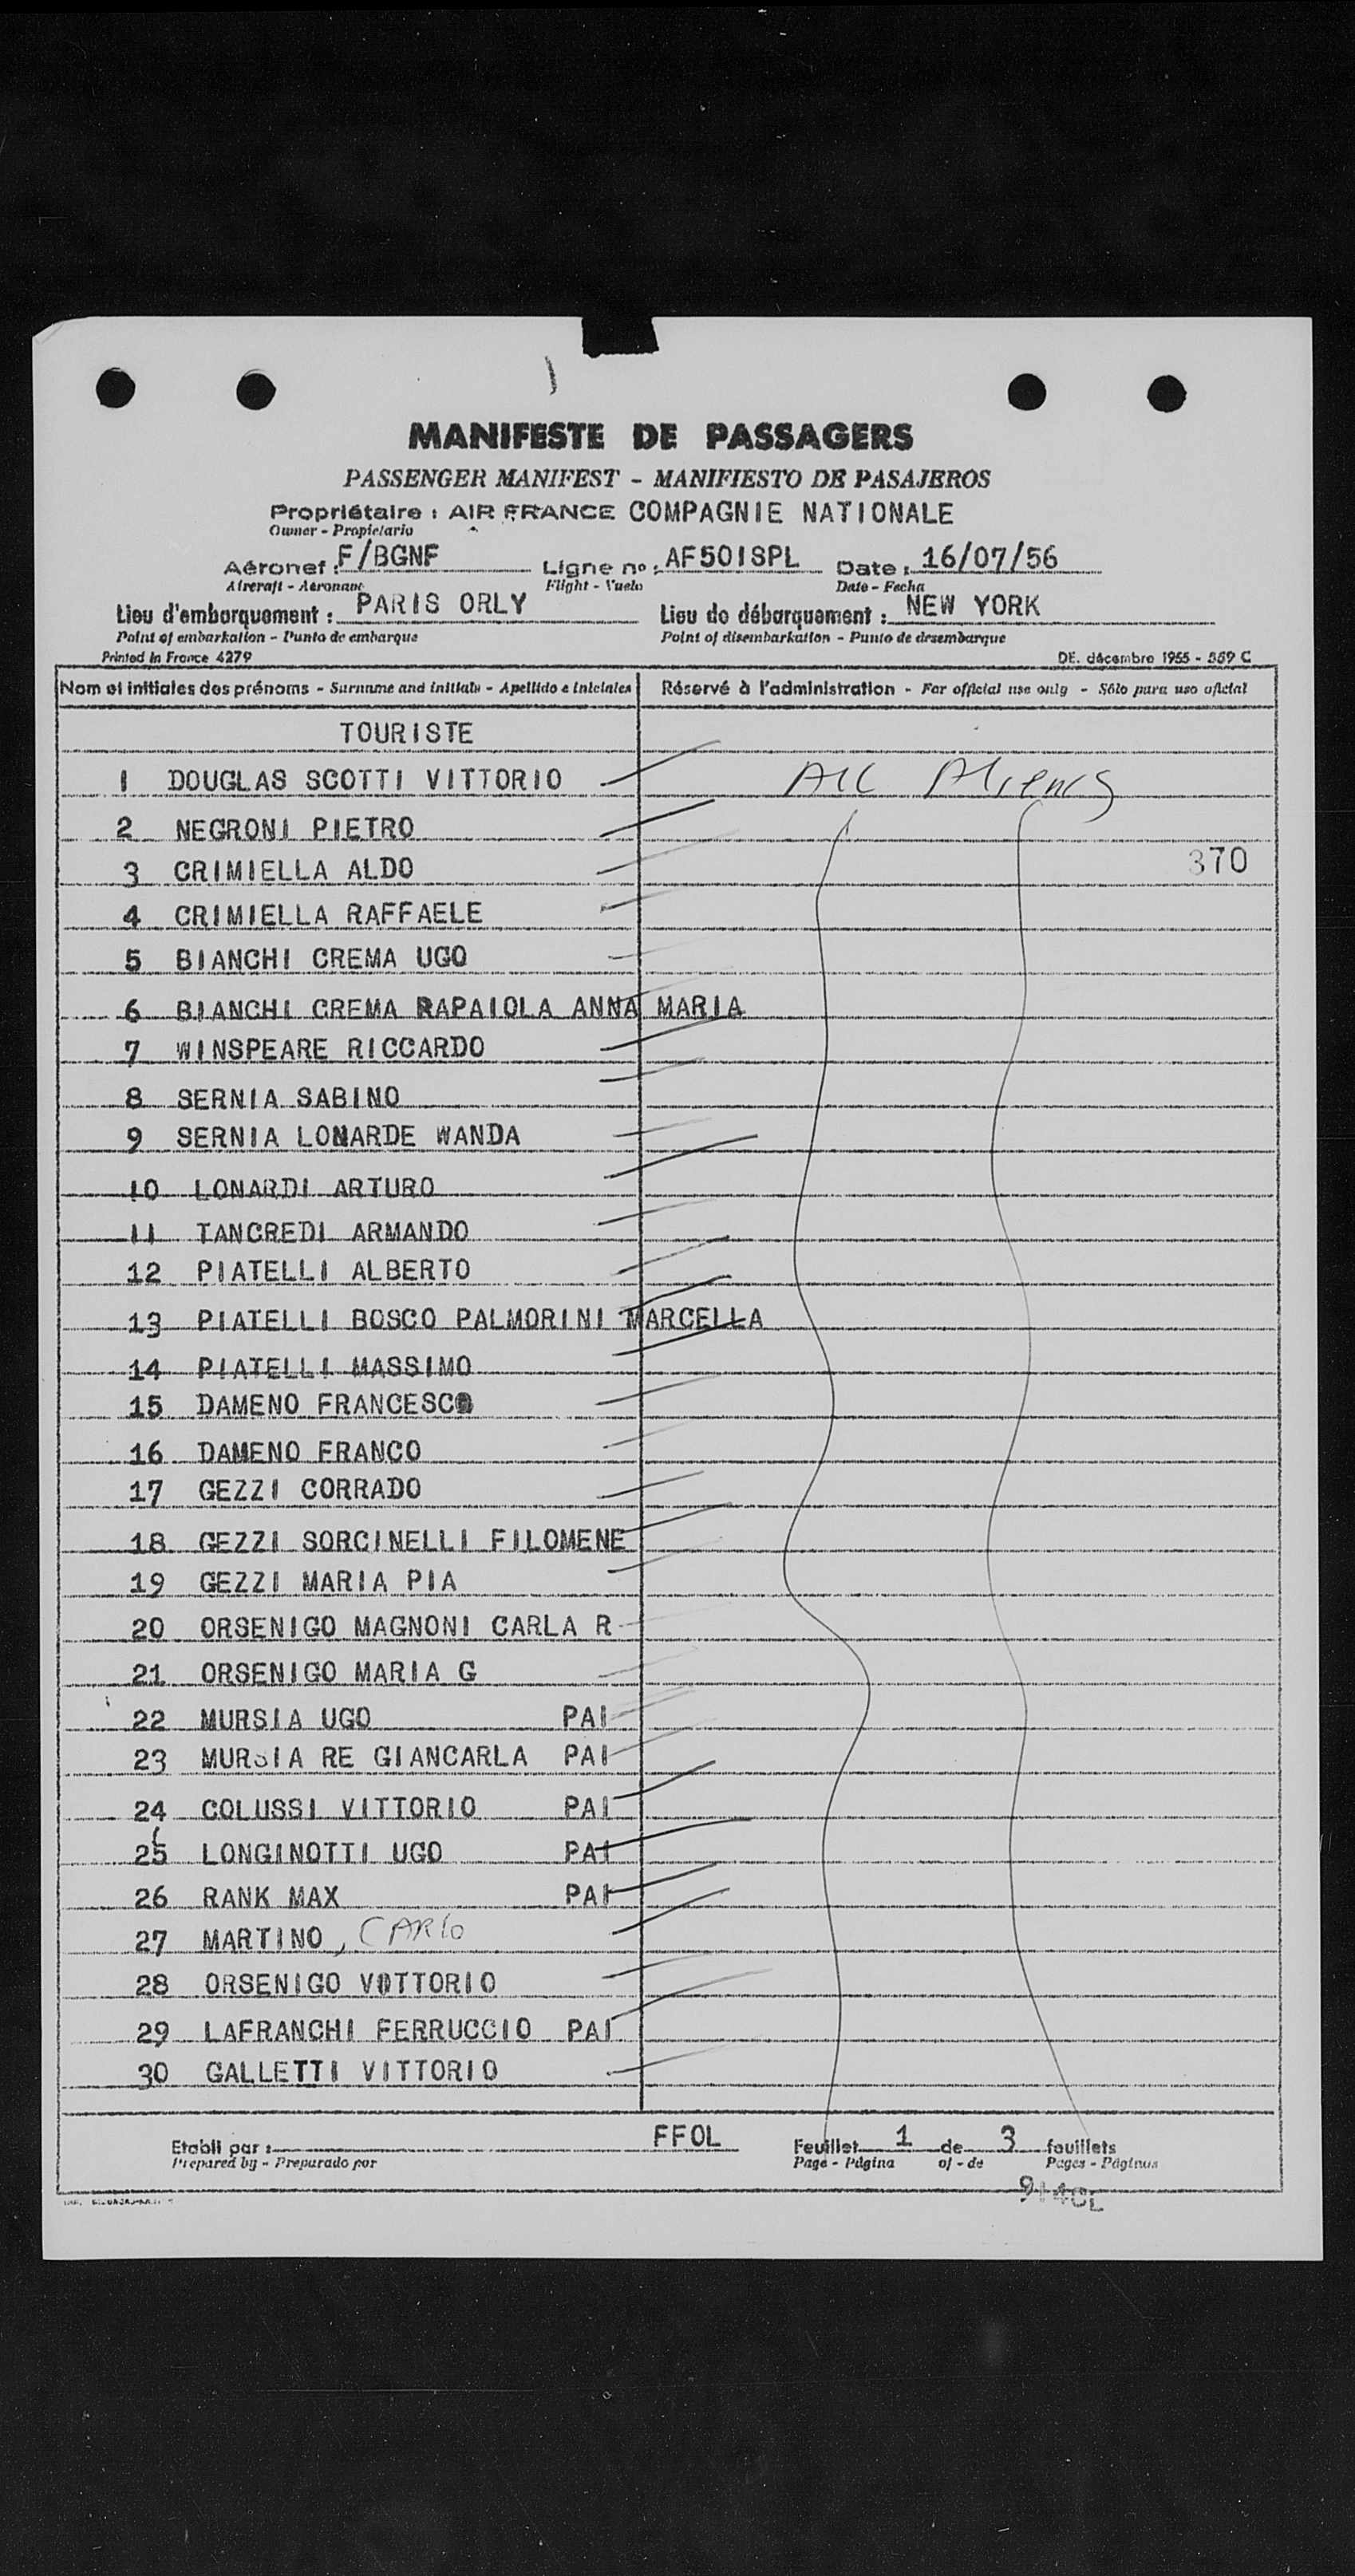 MANIFESTE DE PASSAGERS
PASSENGER MANIFEST - MANIFIESTO DE PASAJEROS
Propriétaire : AIR FRANCE COMPAGNIE NATIONALE
Owner - Propietario
Aéronef : F/BGNF Ligne no : AF501SPL Date : 16/07/56
Aircraft - Aeronave Flight - Vuelo Date - Fecha
Lieu d'embarquement : PARIS ORLY Lieu de débarquement : NEW YORK
Point of embarkation - Punto de embarque Point of disembarkation - Punto de desembarque
Printed in France 4279 DE. décembre 1955 - 559 C
Nom et initiales des prénoms - Surname and initials - Apellido e iniciales Réservé à l'administration - For official use only - Sólo para uso oficial
TOURISTE
1 DOUGLAS SCOTTI VITTORIO All Aliens
2 NEGRONI PIETRO
3 CRIMIELLA ALDO 370
4 CRIMIELLA RAFFAELE
5 BIANCHI CREMA UGO
6 BIANCHI CREMA RAPAIOLA ANNA MARIA
7 WINSPEARE RICCARDO
8 SERNIA SABINO
9 SERNIA LONARDE WANDA
10 LONARDI ARTURO
11 TANCREDI ARMANDO
12 PIATELLI ALBERTO
13 PIATELLI BOSCO PALMORINI MARCELLA
14 PIATELLI MASSIMO
15 DAMENO FRANCESCO
16 DAMENO FRANCO
17 GEZZI CORRADO
18 GEZZI SORCINELLI FILOMENE
19 GEZZI MARIA PIA
20 ORSENIGO MAGNONI CARLA R
21 ORSENIGO MARIA G
22 MURSIA UGO PAI
23 MURSIA RE GIANCARLA PAI
24 COLUSSI VITTORIO PAI
25 LONGINOTTI UGO PAI
26 RANK MAX PAI
27 MARTINO, CARlo
28 ORSENIGO VOTTORIO
29 LAFRANCHI FERRUCCIO PAI
30 GALLETTI VITTORIO
Etabli par : FFOL Feuillet 1 de 3 feuillets
Prepared by - Preparado por Page - Página of - de Pages - Páginas